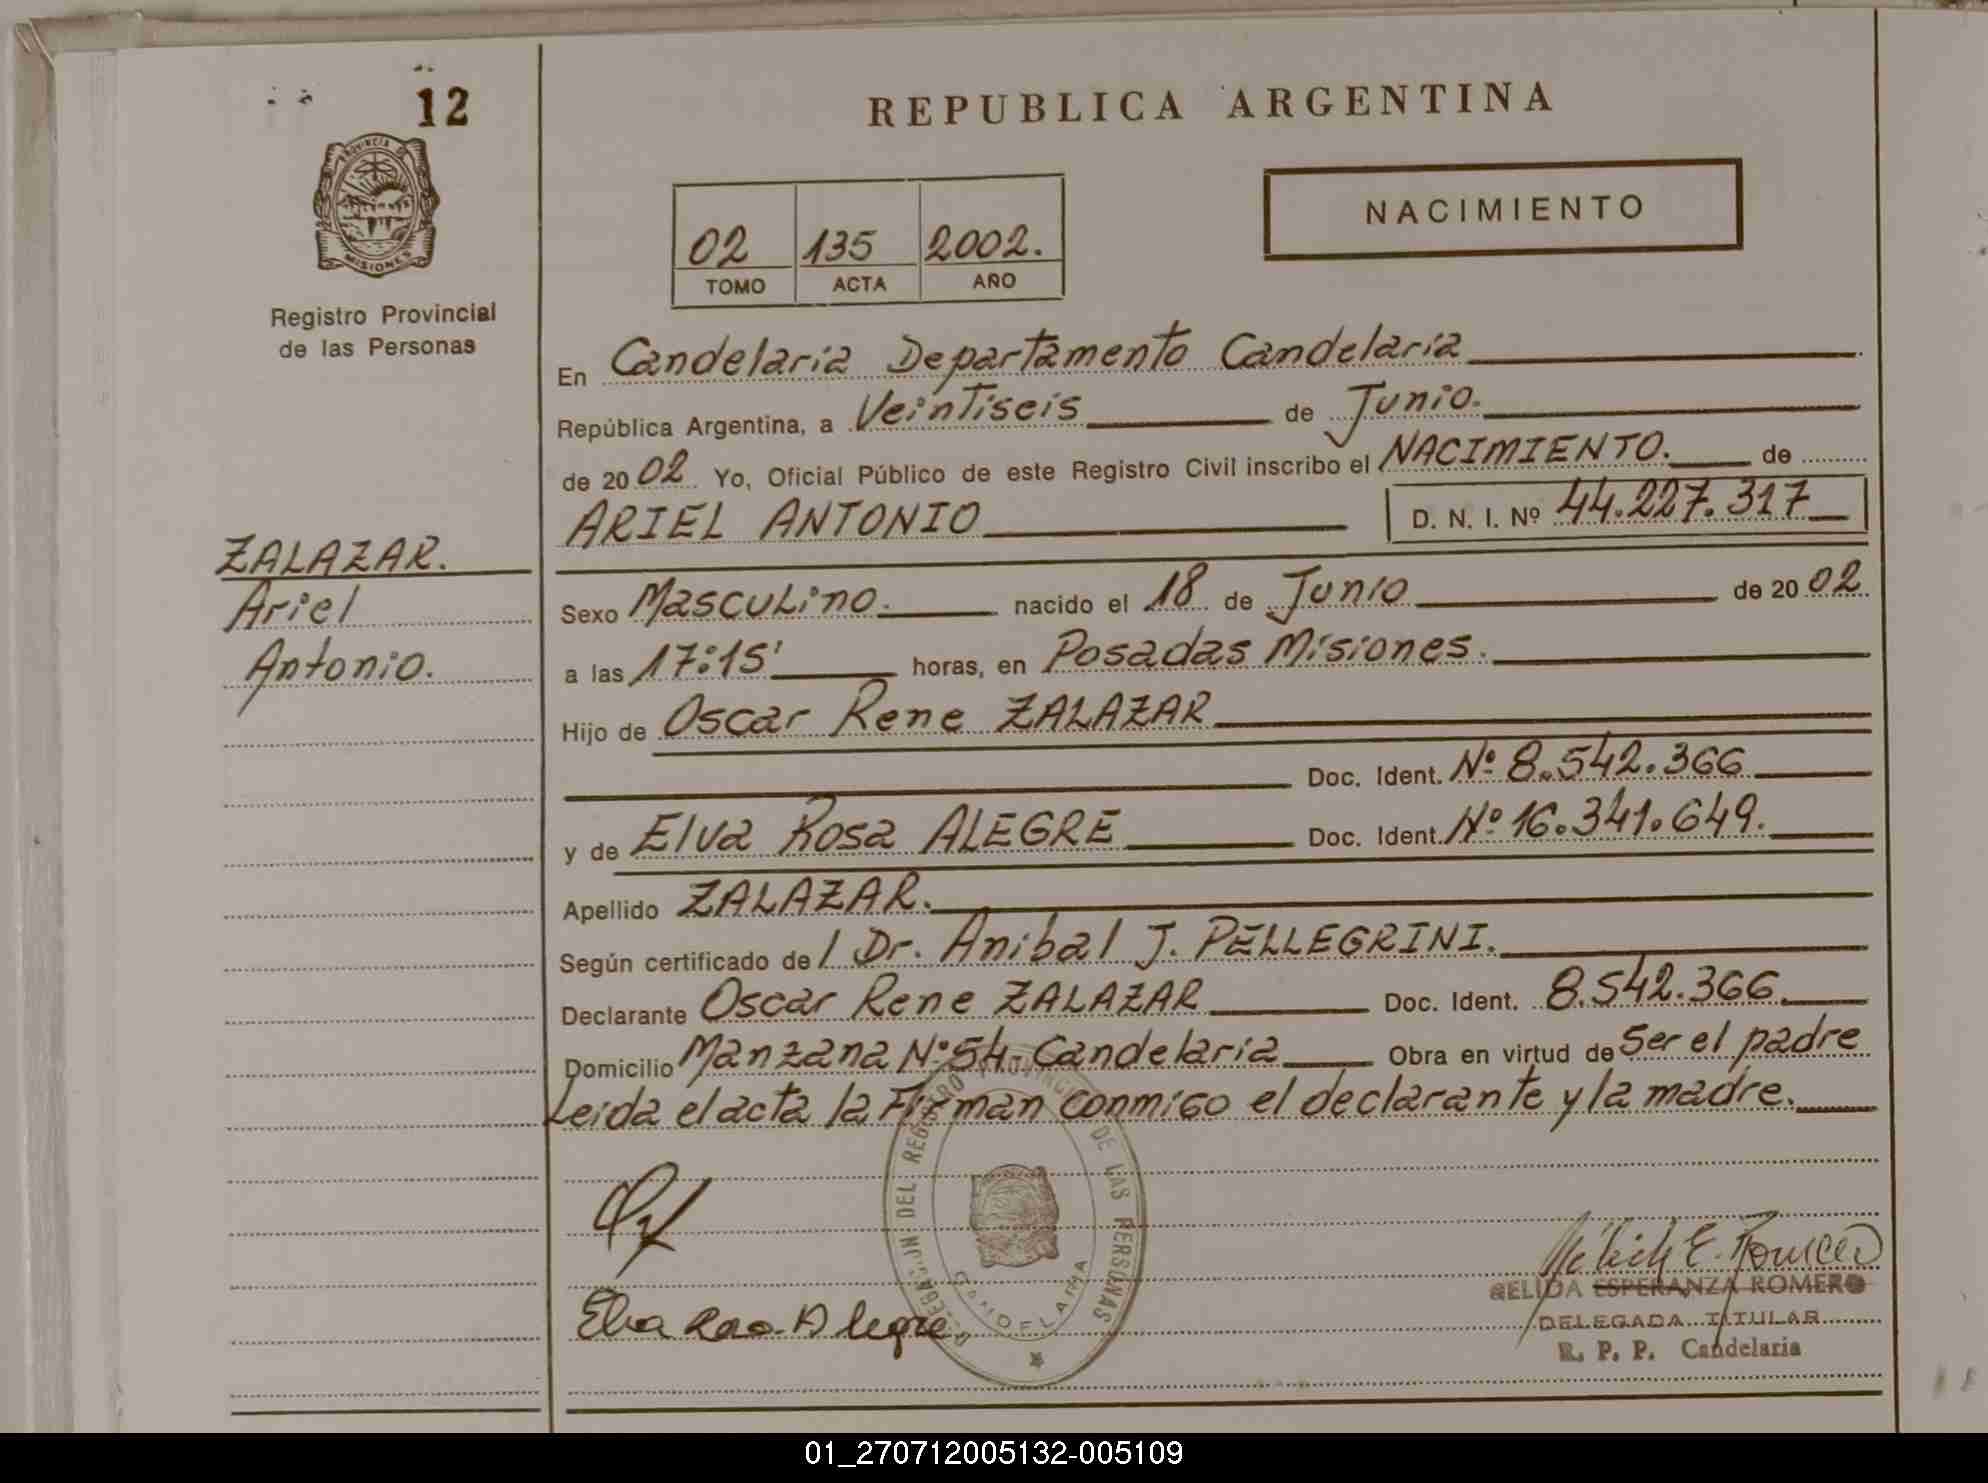 12
PROVINCIA DE
MISIONES
Registro Provincial
de las Personas
REPUBLICA ARGENTINA
02 135 2002.
TOMO ACTA AÑO
NACIMIENTO
En Candelaria Departamento Candelaria
República Argentina, a Veintiseis de Junio.
de 2002 Yo, Oficial Público de este Registro Civil inscribo el NACIMIENTO. de
ARIEL ANTONIO D. N. I. Nº 44.227.317
ZALAZAR.
Ariel
Antonio.
Sexo Masculino. nacido el 18 de Junio de 2002
a las 17:15' horas, en Posadas Misiones.
Hijo de Oscar Rene ZALAZAR
Doc. Ident. Nº 8.542.366
y de Elva Rosa ALEGRE Doc. Ident. Nº 16.341.649.
Apellido ZALAZAR.
Según certificado de l Dr. Anibal J. PELLEGRINI.
Declarante Oscar Rene ZALAZAR Doc. Ident. 8.542.366
Domicilio Manzana Nº 54. Candelaria Obra en virtud de Ser el padre
Leida el acta la Firman conmigo el declarante y la madre.
DELEGACION DEL REGISTRO PROVINCIAL DE LAS PERSONAS
CANDELARIA
Elva Rosa Alegre
GELIDA ESPERANZA ROMERO
DELEGADA TITULAR
R. P. P. Candelaria
01_270712005132-005109